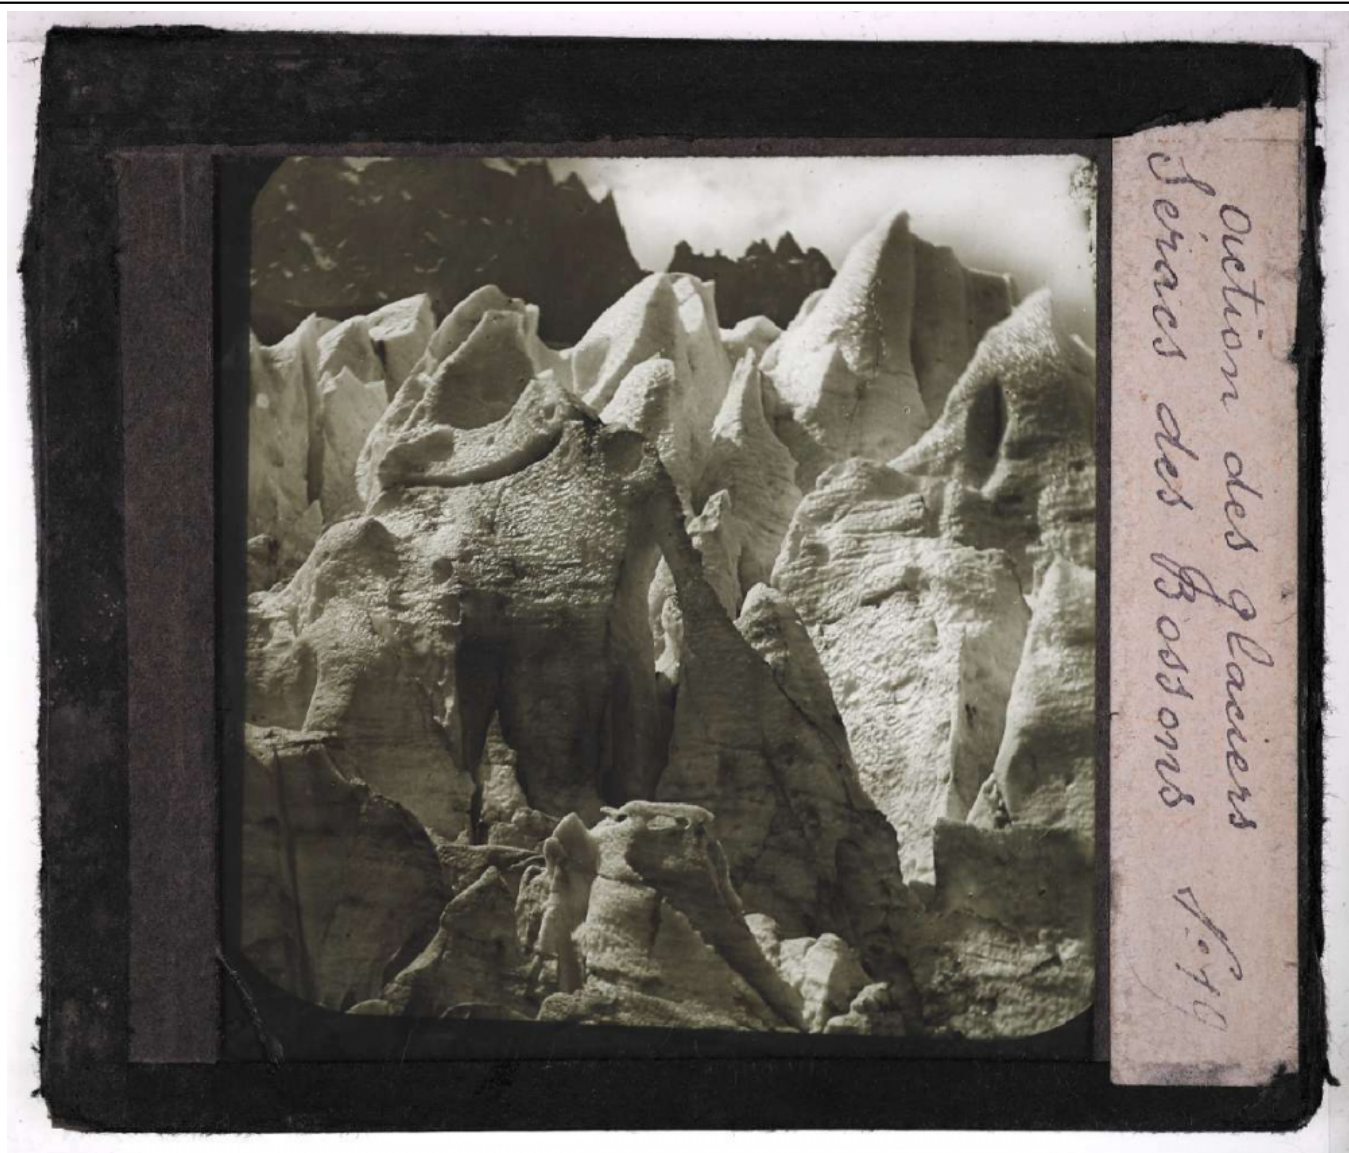 Action des glaciers
Séracs des Bossons